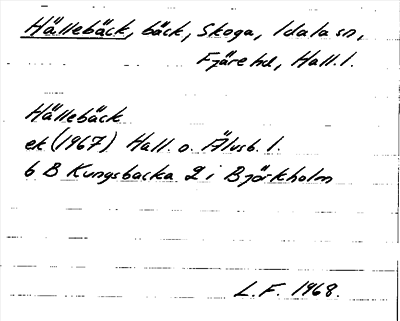 Hällebäck, bäck, Skoga, Idala sn,
Fjäre hd, Hall. l.
Hällebäck
ek (1967) Hall. o. Älvsb. l.
6 B Kungsbacka 2 i Björkholm
L.F. 1968.